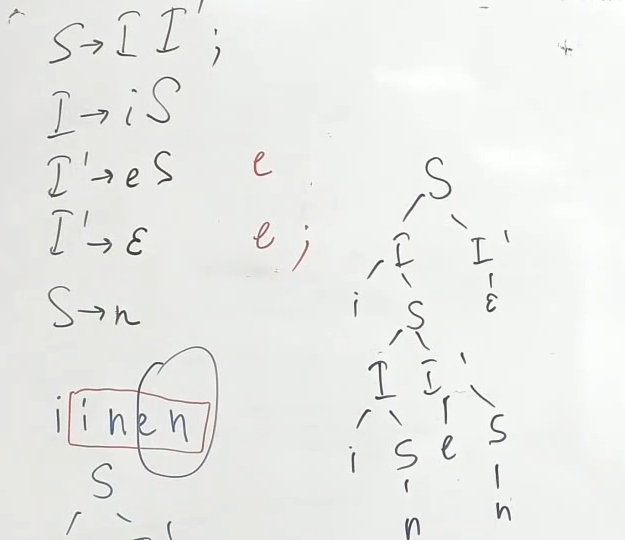 S→I I' ;
I→iS
I'→eS e
I'→ε e ;
S→n
i i n e n
S
S
I I'
i S ε
I I'
i S e S
n n